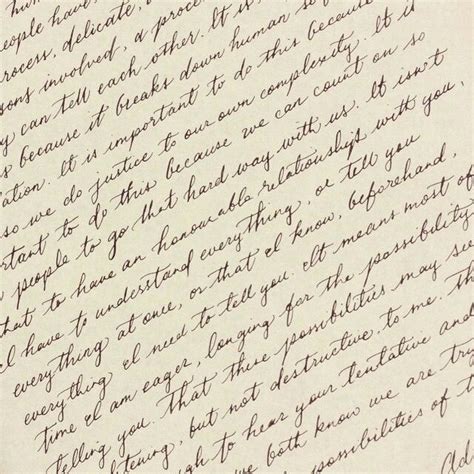 hum
eople have
rocess, delicate,
sons involved, a proce
y can tell each other. It is
s because it breaks down human se
ation. It is important to do this because
so we do justice to our own complexity. It is
rtant to do this because we can count on so
people to go that hard way with us. It isn't
that to have an honourable relationship with you,
I have to understand everything, or tell you
everything at once, or that I know, beforehand,
everything I need to tell you. It means most of
time I am eager, longing for the possibility
telling you. That these possibilities may se
htening, but not destructive, to me. Th
gh to hear your tentative and
we both know we are try
possibilities of t
Ad